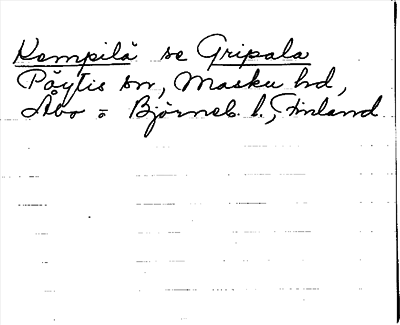 Kempilä se Gripala
Pöytis sn, Masku hd,
Åbo o Björneb. l., Finland